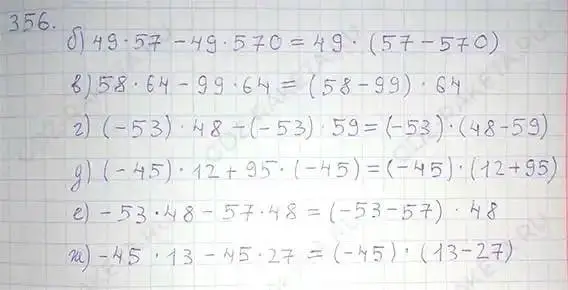 356.
б) 49·57 – 49·570 = 49·(57–570)
в) 58·64 – 99·64 = (58–99)·64
г) (–53)·48 – (–53)·59 = (–53)·(48–59)
д) (–45)·12 + 95·(–45) = (–45)·(12+95)
е) –53·48 – 57·48 = (–53–57)·48
ж) –45·13 – 45·27 = (–45)·(13–27)